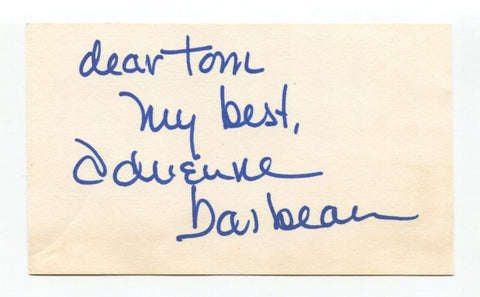 dear Tom
My best,
Adrienne
Barbeau